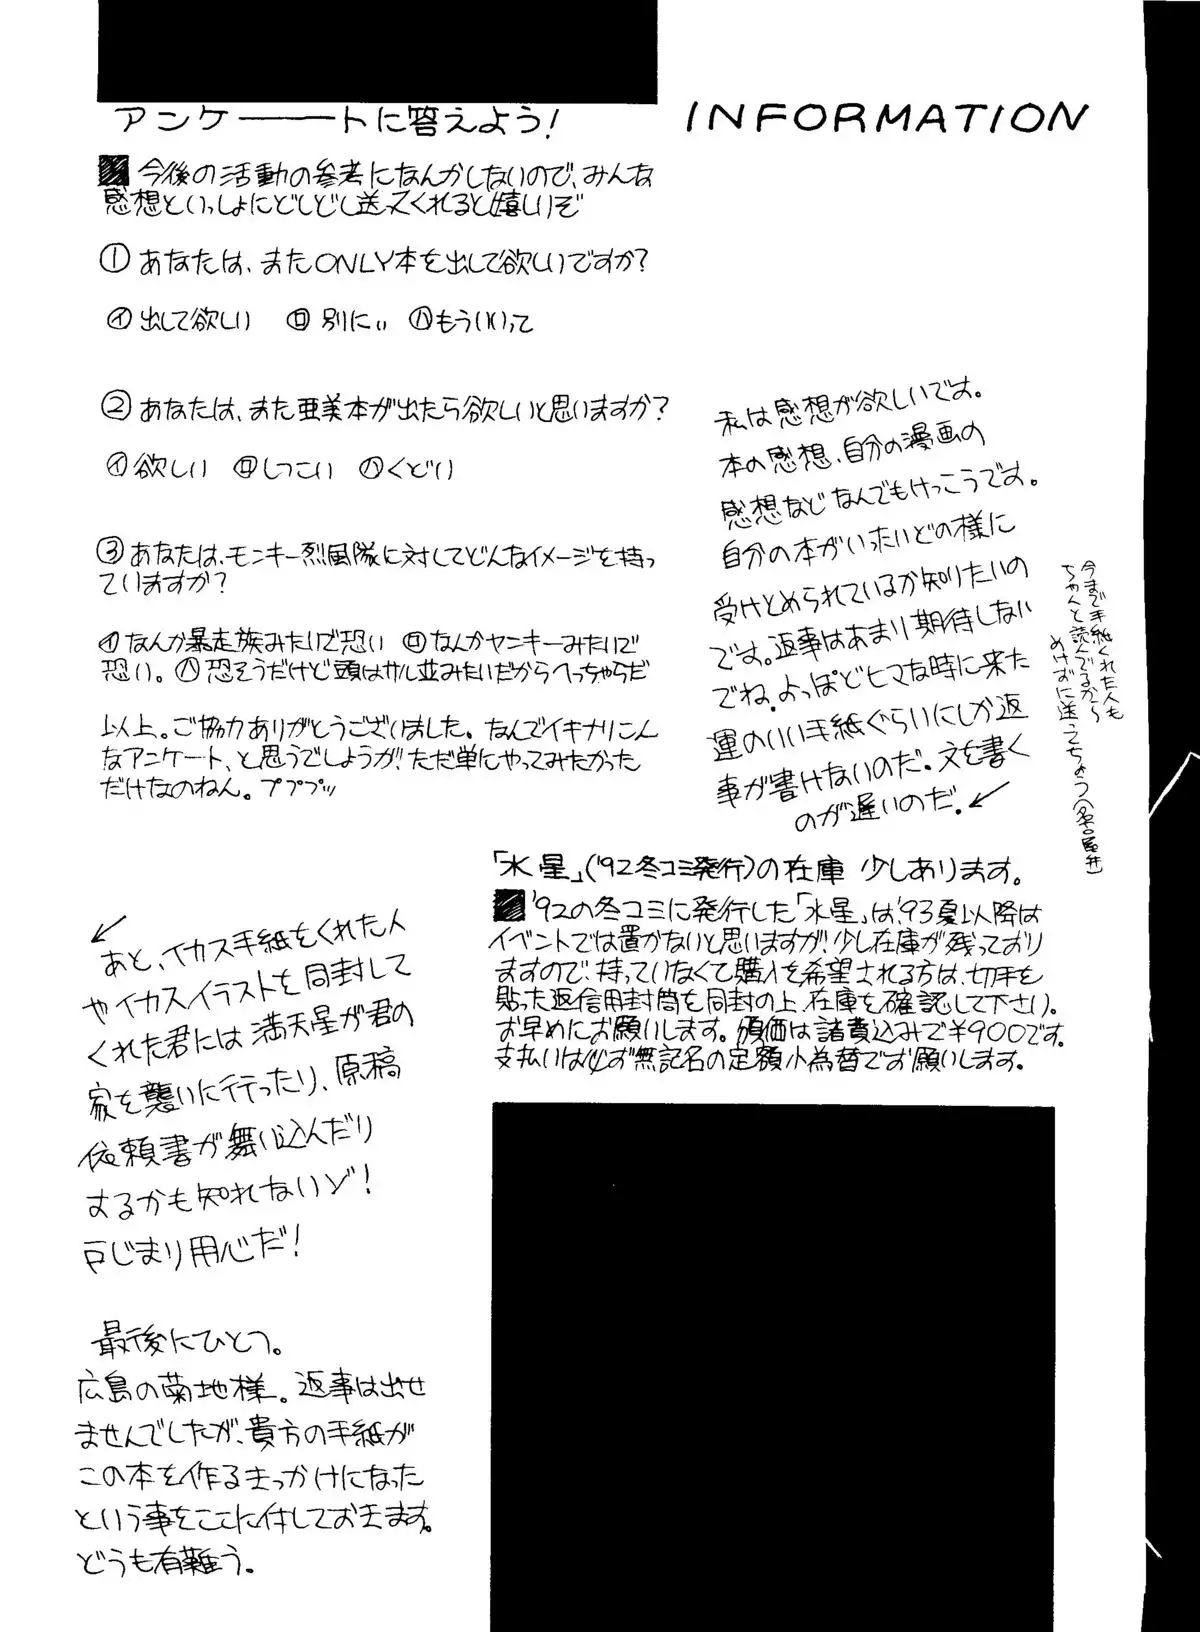 アンケートに答えよう!
INFORMATION
今後の活動の参考になんかしないので、みんな
感想といっしょにどしどし送ってくれると嬉しいぞ
①あなたは、またONLY本を出して欲しいですか?
㋑出して欲しい ㋺別にぃ ㋩もういいって
②あなたは、また亜美本が出たら欲しいと思いますか?
㋑欲しい ㋺しつこい ㋩くどい
③あなたは、モンキー烈風隊に対してどんなイメージを持っ
ていますか?
㋑なんか暴走族みたいで恐い ㋺なんかヤンキーみたいで
恐い。㋩恐そうだけど頭はサル並みたいだからへっちゃらだ
以上。ご協力ありがとうございました。なんでイキナリこん
なアンケート、と思うでしょうが、ただ単にやってみたかった
だけなのねん。プププッ
私は感想が欲しいです。
本の感想、自分の漫画の
感想などなんでもけっこうです。
自分の本がいったいどの様に
受けとめられているか知りたいの
です。返事はあまり期待しない
でね。よっぽどヒマな時に来た
運のいい手紙ぐらいにしか返
事が書けないのだ。文を書く
のが遅いのだ。
今まで手紙くれた人も
ちゃんと読んでるから
めげずに送ってちょう(名古屋弁)
あと、イカス手紙をくれた人
やイカスイラストを同封して
くれた君には満天星が君の
家を襲いに行ったり、原稿
依頼書が舞い込んだり
するかも知れないゾ!
戸じまり用心だ!
最後にひとつ。
広島の菊地様。返事は出せ
ませんでしたが、貴方の手紙が
この本を作るきっかけになった
という事をここに付しておきます。
どうも有難う。
「水星」('92冬コミ発行)の在庫 少しあります。
'92の冬コミに発行した「水星」は'93夏以降は
イベントでは置かないと思いますが、少し在庫が残っており
ますので、持っていなくて購入を希望される方は、切手を
貼った返信用封筒を同封の上、在庫を確認して下さい。
お早めにお願いします。頒価は諸費込みで¥900です。
支払いは必ず無記名の定額小為替でお願いします。